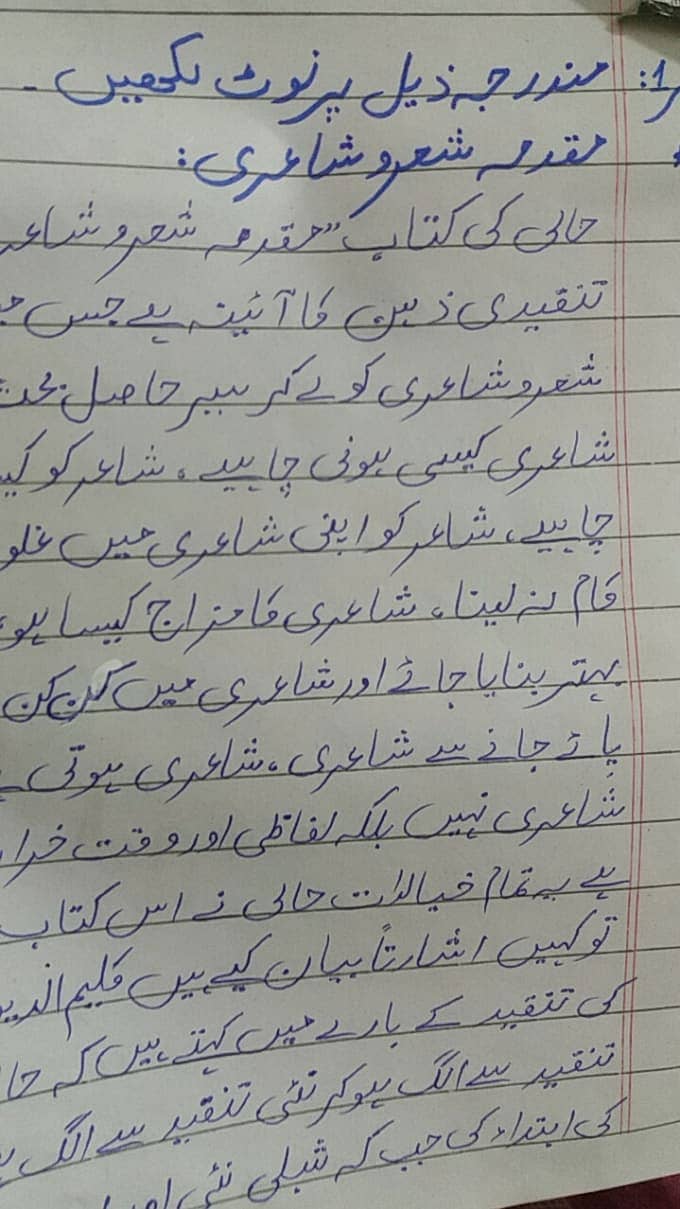 1: مندرجہ ذیل پر نوٹ لکھیں -
مقدمہ شعر و شاعری:
حالی کی کتاب "مقدمہ شعر و شاعر
تنقیدی ذہن کا آئینہ ہے جس
شعر و شاعری کو لے کر سیر حاصل بحث
شاعری کیسی ہونی چاہیے، شاعر کو
چاہیے، شاعر کو اپنی شاعری میں غلو
کام نہ لینا، شاعری کا مزاج کیسا ہو،
بہتر بنایا جائے اور شاعری میں کن کن
پائے جانے سے شاعری، شاعری ہوتی
شاعری نہیں بلکہ لفاظی اور وقت خرا
ہے یہ تمام خیالات حالی نے اس کتاب
تو کہیں اشارتاً بیان کیے ہیں کلیم الدین
کی تنقید کے بارے میں کہتے ہیں کہ حا
تنقید سے الگ ہو کر نئی تنقید سے الگ
کی ابتداء کی جب کہ شبلی نئی اور